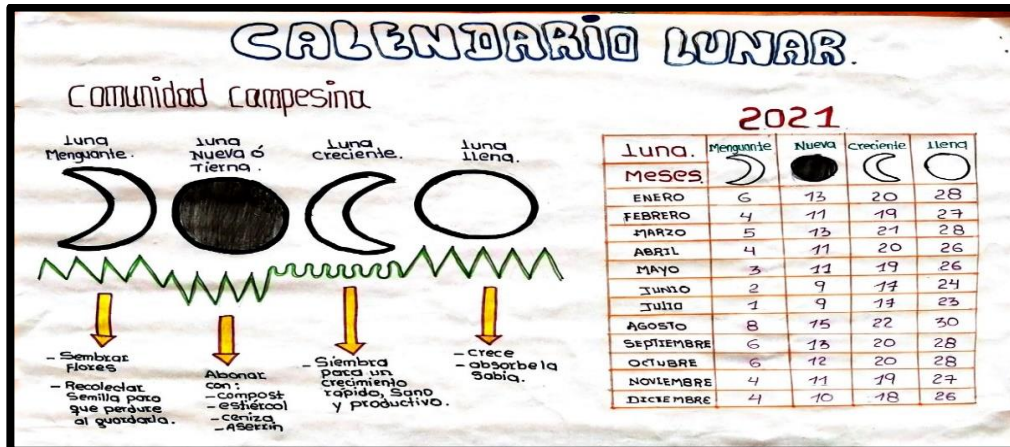 CALENDARIO LUNAR.
Comunidad Campesina
Luna Menguante.
Luna Nueva ó Tierna.
Luna Creciente.
Luna Llena.
- Sembrar Flores
- Recolectar Semilla para que perdure al guardarla.
Abonar con:
- compost
- estiércol
- ceniza
- Aserrín
- Siembra para un crecimiento rápido, Sano y productivo.
- crece
- absorbe la Sabia.
2021
Luna. Menguante Nueva Creciente Llena
Meses.
ENERO 6 13 20 28
FEBRERO 4 11 19 27
MARZO 5 13 21 28
ABRIL 4 11 20 26
MAYO 3 11 19 26
JUNIO 2 9 17 24
JULIO 1 9 17 23
AGOSTO 8 15 22 30
SEPTIEMBRE 6 13 20 28
OCTUBRE 6 12 20 28
NOVIEMBRE 4 11 19 27
DICIEMBRE 4 10 18 26